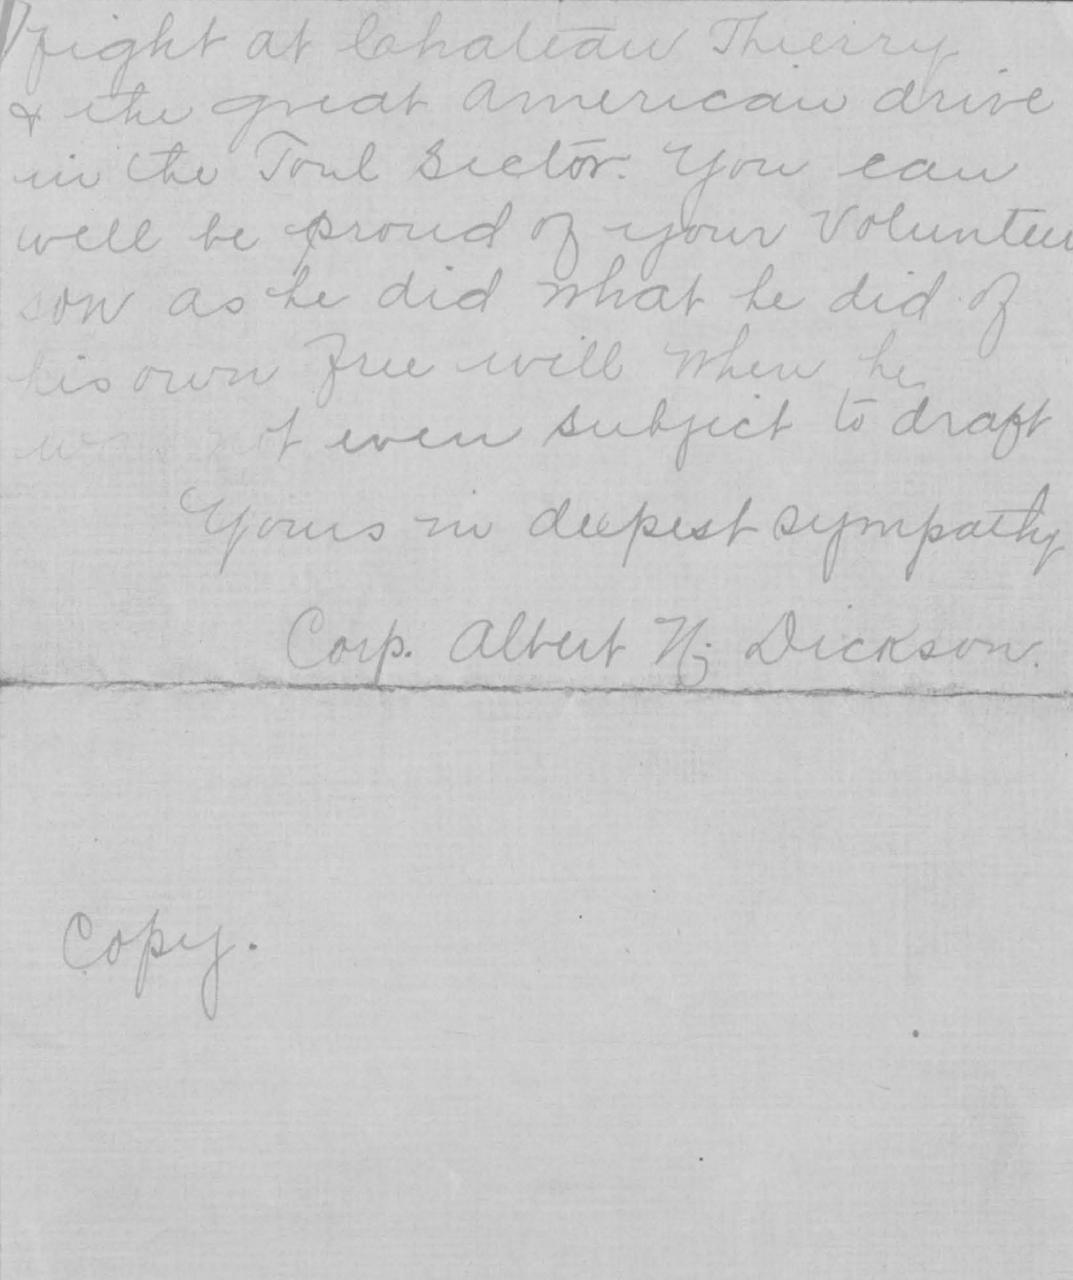 fight at Chateau Thierry
& the great American drive
in the Toul Sector. You can
well be proud of your Volunteer
son as he did what he did of
his own free will when he
was not even subject to draft
Yours in deepest sympathy
Corp. Albert N. Dickson.
Copy.